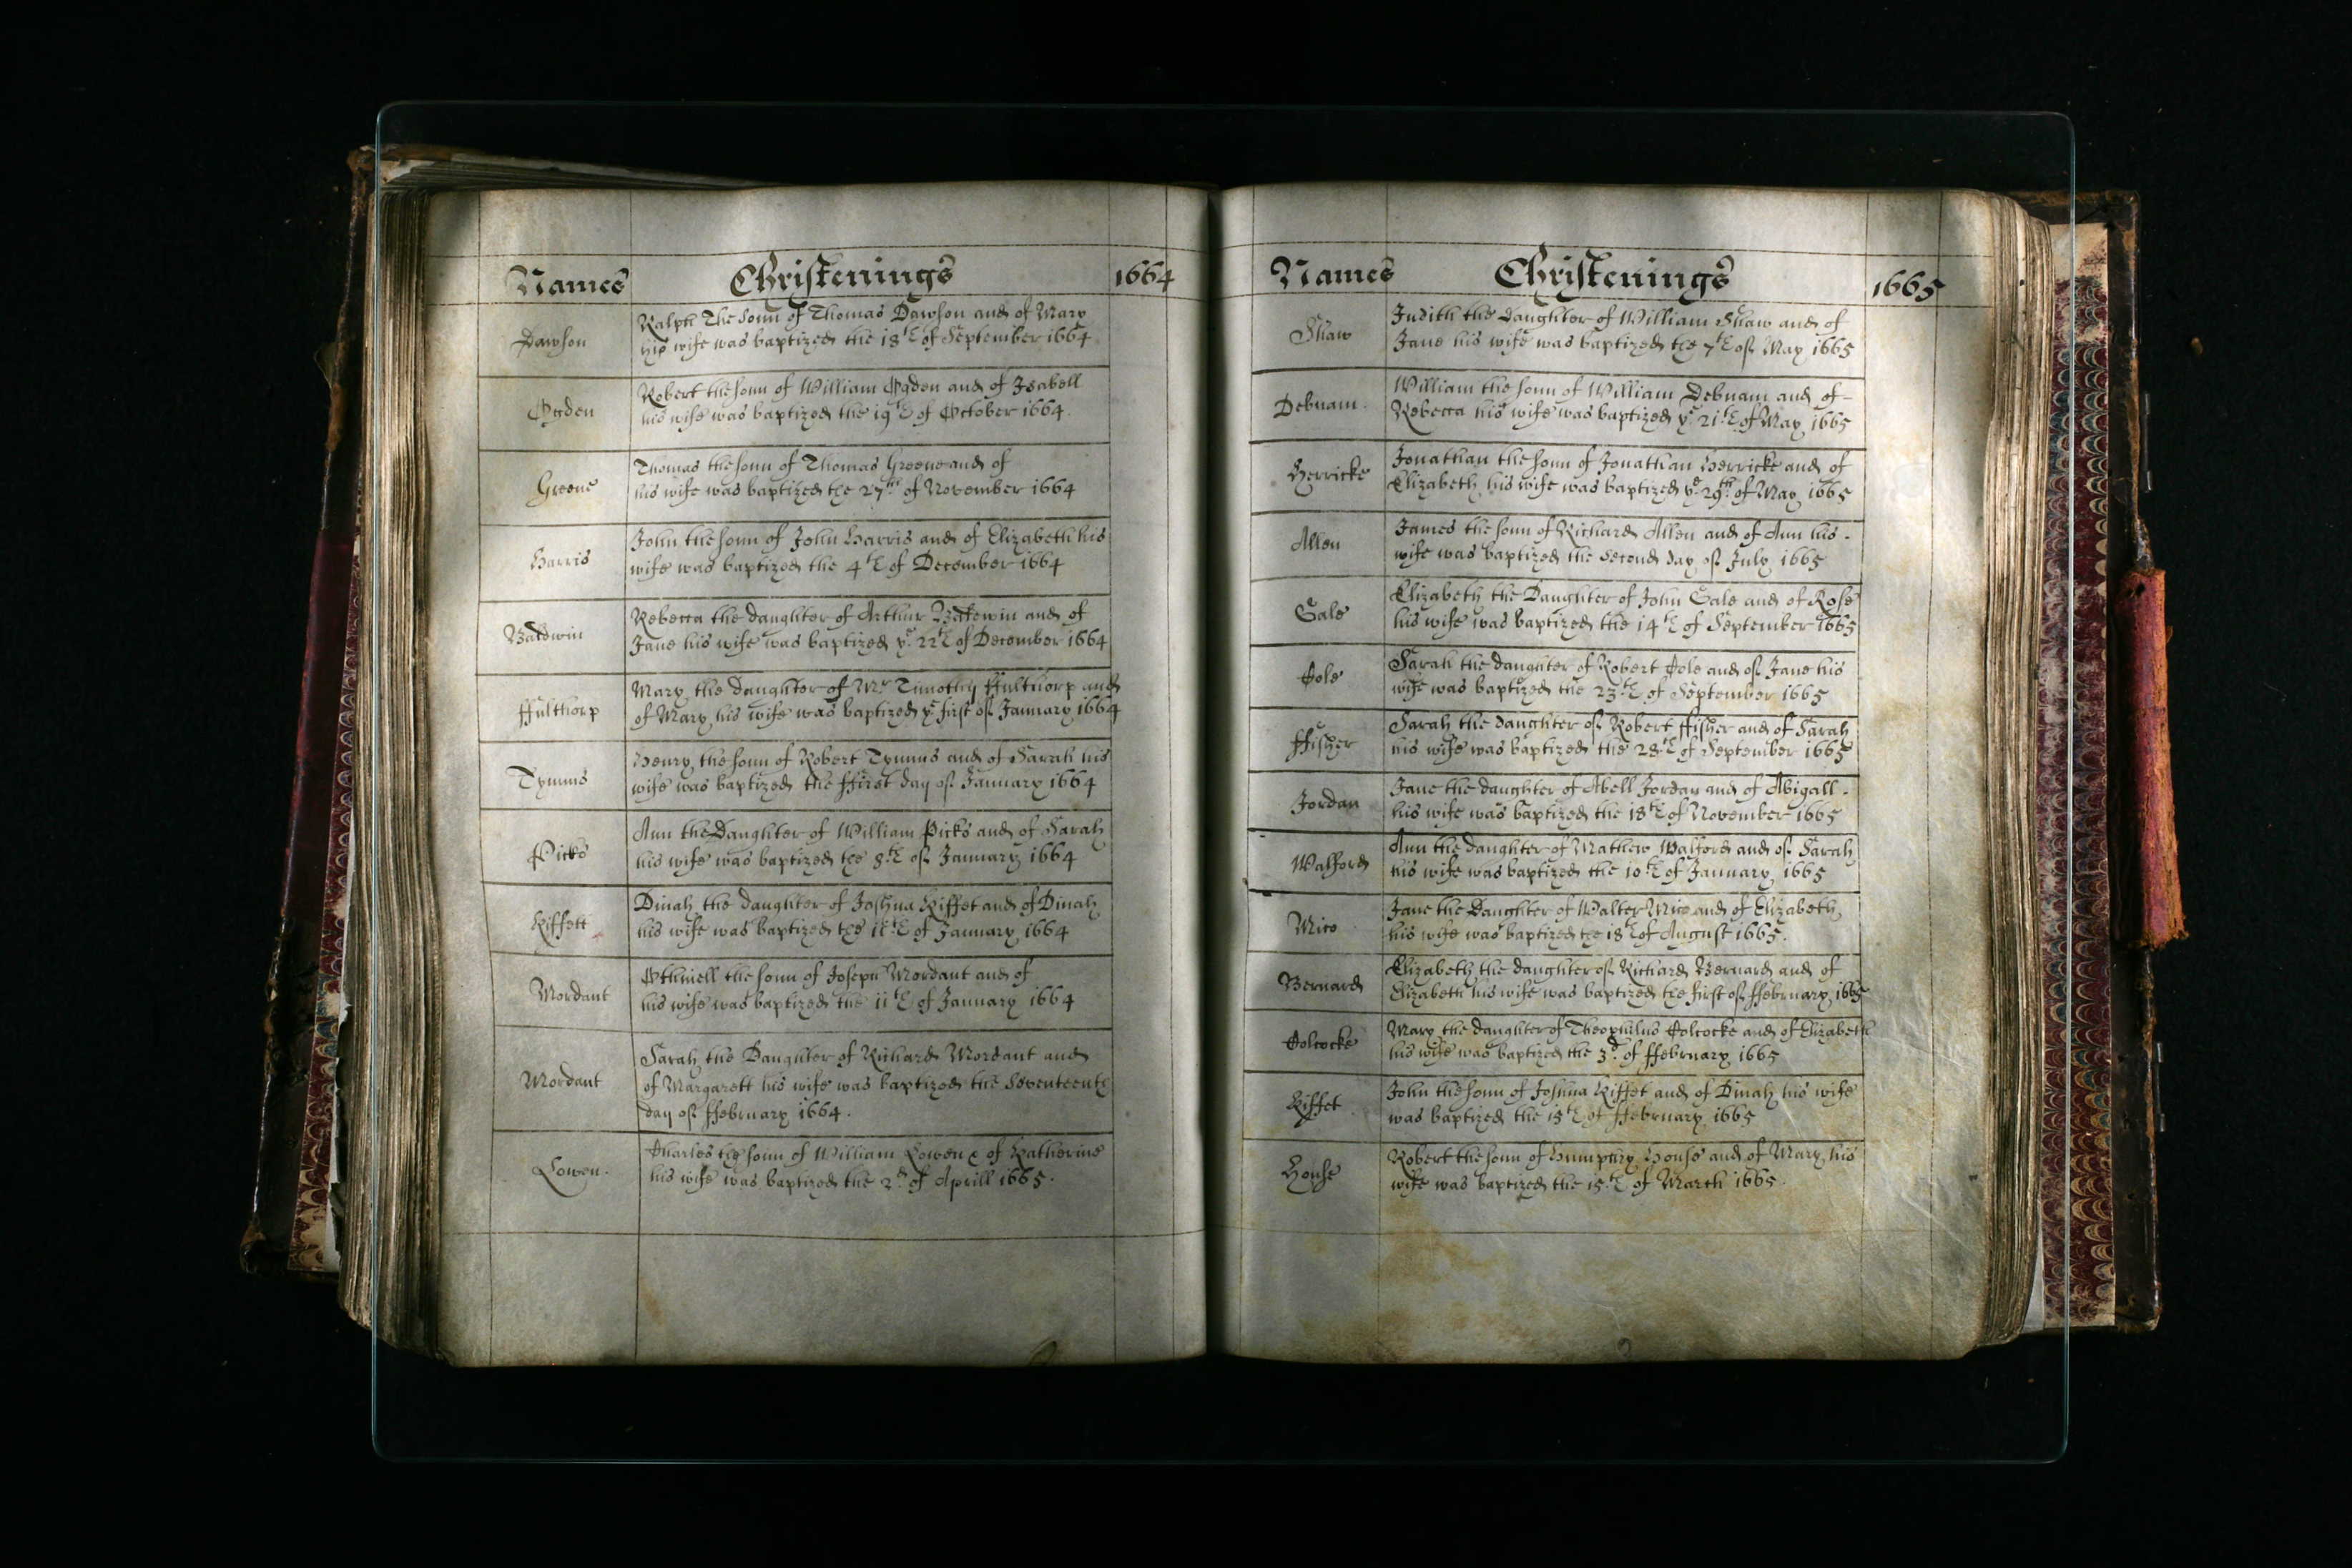 Names Christenings 1664
Dawson
Ralph The sonn of Thomas Dawson and of Mary
his wife was baptized the 18th of September 1664
Ogden
Robert the sonn of William Ogden and of Isabell
his wife was baptized the 19th of October 1664
Greene
Thomas the sonn of Thomas Greene and of
his wife was baptized the 27th of November 1664
Harris
John the sonn of John Harris and of Elizabeth his
wife was baptized the 4th of December 1664
Baldwin
Rebecca the daughter of Arthur Baldwin and of
Jane his wife was baptized ye 22th of December 1664
ffulthorp
Mary the daughter of Mr Timothy ffulthorp and
of Mary his wife was baptized ye first of January 1664
Tymms
Henry the sonn of Robert Tymms and of Sarah his
wife was baptized the ffirst day of January 1664
Picks
Ann the Daughter of William Picks and of Sarah
his wife was baptized the 8th of January 1664
Kiffett
Dinah the daughter of Joshua Kiffet and of Dinah
his wife was baptized the 11th of January 1664
Mordant
Othniell the sonn of Joseph Mordant and of
his wife was baptized the 11th of January 1664
Mordant
Sarah the Daughter of Richard Mordant and
of Margarett his wife was baptized the Seventeenth
day of ffebruary 1664.
Lowen.
Charles the sonn of William Lowen & of Katherine
his wife was baptized the 2th of Aprill 1665.
Names Christenings 1665
Shaw
Judith the daughter of William Shaw and of
Jane his wife was baptized the 7th of May 1665
Debnam
William the sonn of William Debnam and of
Rebecca his wife was baptized ye 21th of May 1665
Herricke
Jonathan the sonn of Jonathan Herricke and of
Elizabeth his wife was baptized ye 29th of May 1665
Allen
James the sonn of Richard Allen and of Ann his
wife was baptized the Second day of July 1665
Gale
Elizabeth the Daughter of John Gale and of Rose
his wife was baptized the 14th of September 1665
Cole
Sarah the daughter of Robert Cole and of Jane his
wife was baptized the 23th of September 1665
ffisher
Sarah the daughter of Robert ffisher and of Sarah
his wife was baptized the 28th of September 1665
Jordan
Jane the daughter of Abell Jordan and of Abigall
his wife was baptized the 18th of November 1665
Walford
Ann the daughter of Mathew Walford and of Sarah
his wife was baptized the 10th of January 1665
Mico
Jane the Daughter of Walter Mico and of Elizabeth
his wife was baptized the 18th of August 1665.
Bernard
Elizabeth the daughter of Richard Bernard and of
Elizabeth his wife was baptized the first of ffebruary 1665
Colcocke
Mary the daughter of Theophilus Colcocke and of Elizabeth
his wife was baptized the 3d of ffebruary 1665
Kiffet
John the sonn of Joshua Kiffet and of Dinah his wife
was baptized the 15th of ffebruary 1665
House
Robert the sonn of Humphry House and of Mary his
wife was baptized the 15th of March 1665.